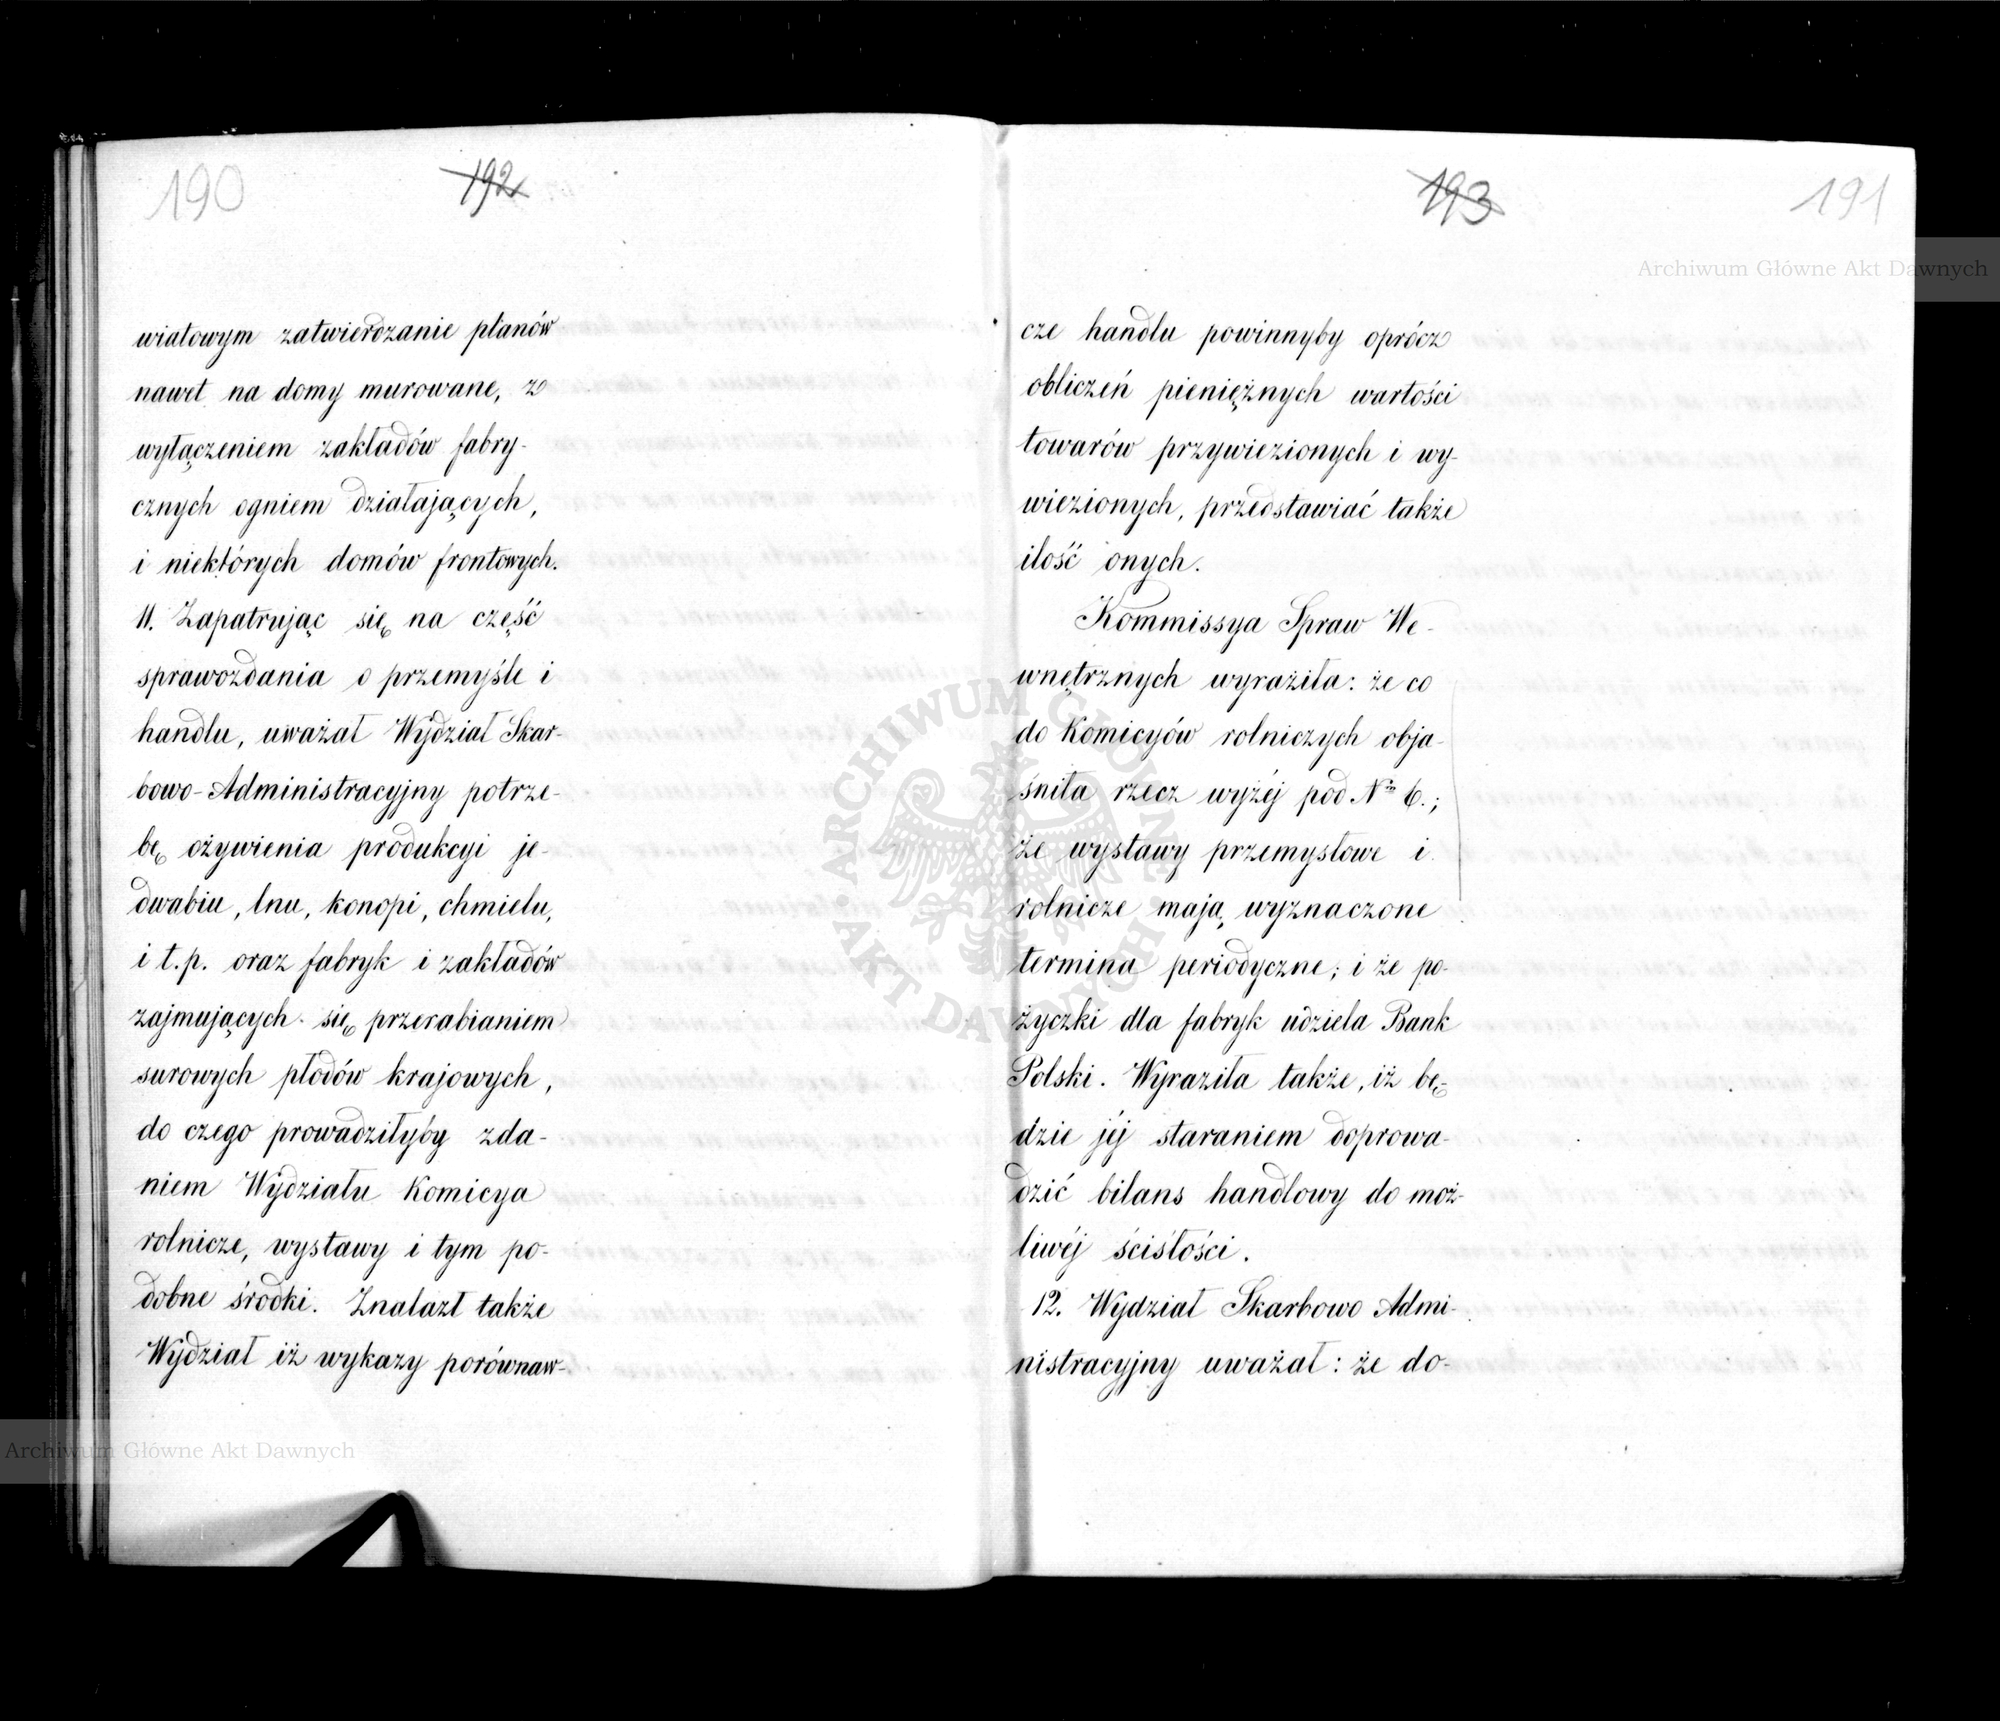 190
192
wiatowym zatwierdzanie planów
nawet na domy murowane, z
wyłączeniem zakładów fabry-
cznych ogniem działających,
i niektórych domów frontowych.
11. Zapatrując się na część
sprawozdania o przemyśle i
handlu, uważał Wydział Skar-
bowo-Administracyjny potrze-
bę ożywienia produkcyi je-
dwabiu, lnu, konopi, chmielu,
i t.p. oraz fabryk i zakładów
zajmujących się przerabianiem
surowych płodów krajowych,
do czego prowadziłyby zda-
niem Wydziału Komicya
rolnicze, wystawy i tym po-
dobne środki. Znalazł także
Wydział iż wykazy porównaw-
193
191
cze handlu powinnyby oprócz
obliczeń pieniężnych wartości
towarów przywiezionych i wy-
wiezionych, przedstawiać także
ilość onych.
Kommissya Spraw We-
wnętrznych wyraziła: że co
do Komicyów rolniczych obja-
śniła rzecz wyżéj pod Nm 6.;
że wystawy przemysłowe i
rolnicze mają wyznaczone
termina periodyczne; i że po-
życzki dla fabryk udziela Bank
Polski. Wyraziła także, iż bę-
dzie jéj staraniem doprowa-
dzić bilans handlowy do moż-
liwéj ścisłości.
12. Wydział Skarbowo Admi-
nistracyjny uważał: że do-
Archiwum Główne Akt Dawnych
Archiwum Główne Akt Dawnych
ARCHIWUM GŁÓWNE AKT DAWNYCH